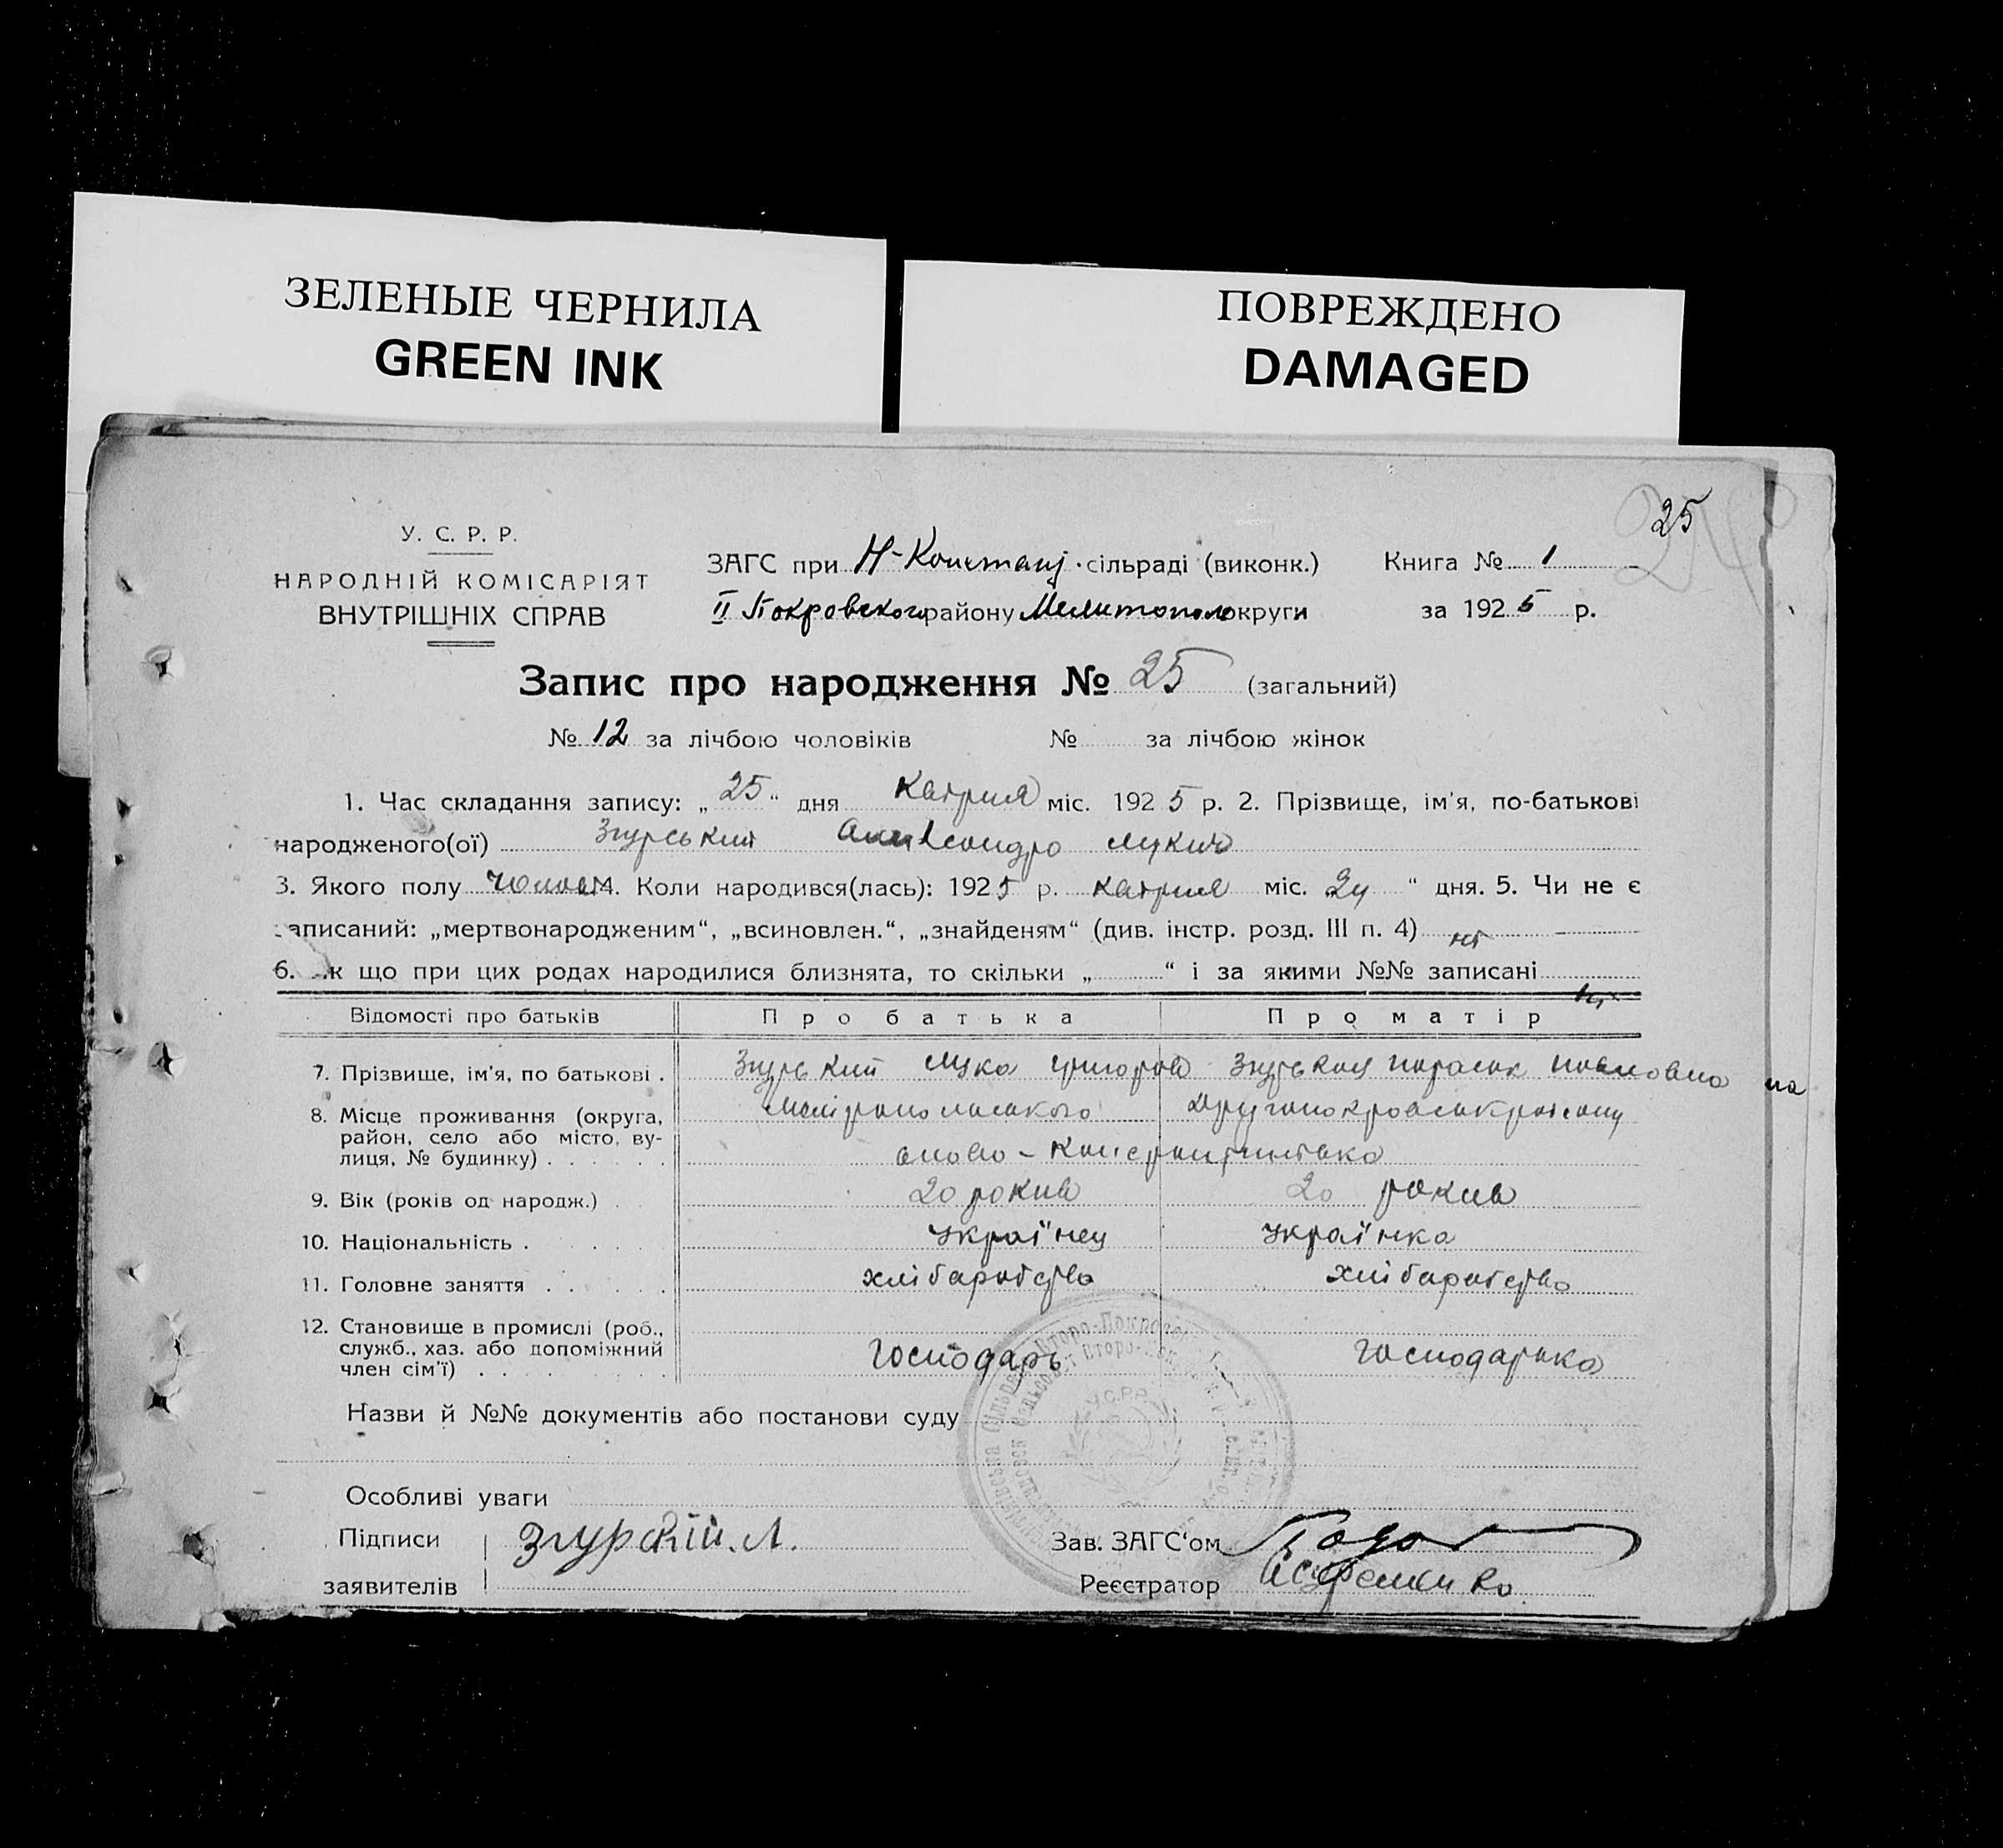 ЗЕЛЕНЫЕ ЧЕРНИЛА
GREEN INK
ПОВРЕЖДЕНО
DAMAGED
25
У. С. Р. Р.
НАРОДНІЙ КОМІСАРІЯТ
ВНУТРІШНІХ СПРАВ
ЗАГС при Н-Констанц. сільраді (виконк.)
Книга № 1
ІІ Покровского району Мелитополь округи
за 1925 р.
Запис про народження № 25 (загальний)
№ 12 за лічбою чоловіків № за лічбою жінок
1. Час складання запису: „25“ дня Квітня міс. 1925 р. 2. Прізвище, ім'я, по-батькові
народженого(ої) Згурський Александро Лукич
3. Якого полу чолов 4. Коли народився(лась): 1925 р. квітня міс. 24 “ дня. 5. Чи не є
записаний: „мертвонародженим“, „всиновлен.“, „знайденям“ (див. інстр. розд. III п. 4) ні
6. к що при цих родах народилися близнята, то скільки „ “ і за якими №№ записані
Відомості про батьків Про батька Про матір
7. Прізвище, ім'я, по батькові . Згурський Лука Згурская Параска Павловна
8. Місце проживання (округа,
район, село або місто, ву-
лиця, № будинку)
9. Вік (років од народж.) 20 рокив 20 рокив
10. Національність . Украї'нец Украї'нка
11. Головне заняття хліборобство хліборобство
12. Становище в промислі (роб.,
служб., хаз. або допоміжний
член сім'ї) Господарь господарька
Назви й №№ документів або постанови суду
У.С.Р.Р.
Особливі уваги
Підписи Згурский. Л. Зав. ЗАГС'ом
заявителів Реєстратор